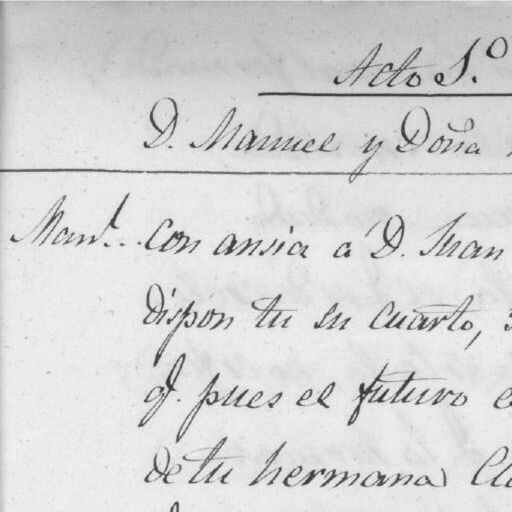 Acto 1.º
D. Manuel y Doña
Man.l Con ansia á D. Juan
dispon tu su cuarto,
q.e pues el futuro
de tu hermana